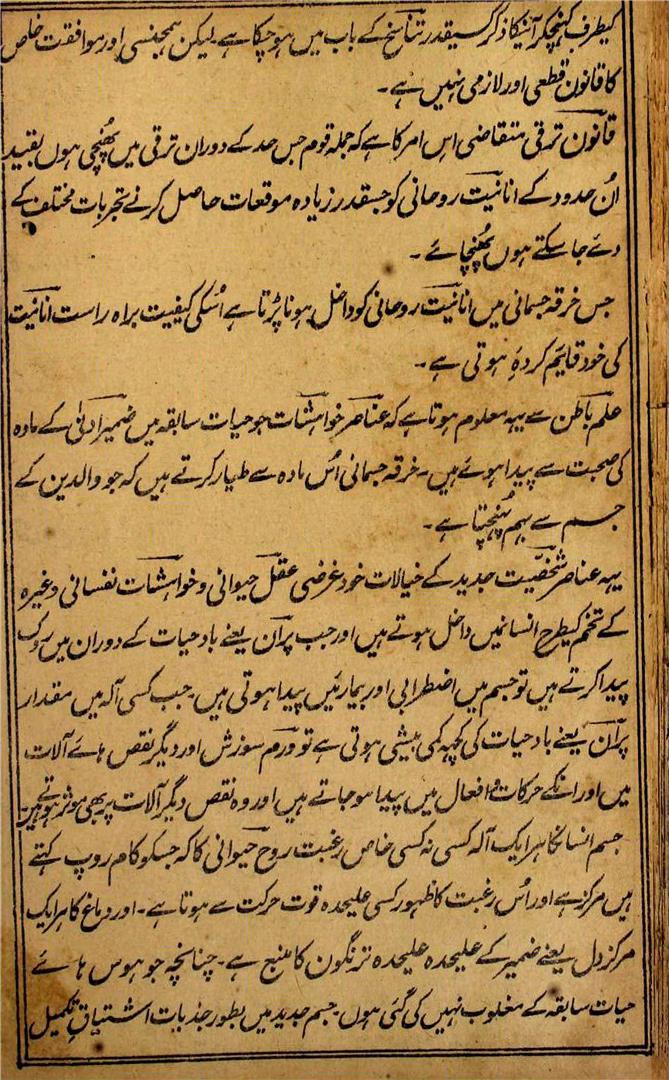 کیطرف کھنچکر آنیکا ذکر کسیقدر تناسخ کے باب میں ہو چکا ہے۔ لیکن ہمجنسی اور موافقت خاص
کا قانون قطعی اور لازمی نہیں ہے۔
قانون ترقی متقاضی اِس امر کا ہے کہ جملہ قوم جس حد کے دوران ترقی میں پُہنچی ہوں بقیید
اُن حدود کے انانیت روحانی کو جسقدر زیادہ موقعات حاصل کرنے تجربات مختلف کے
دئے جا سکتے ہوں پُہنچائے۔
جس خرقہ جسمانی میں انانیت روحانی کو داخل ہونا پڑتا ہے اُسکی کیفیت براہ راست انانیت
کی خود قایم کردہ ہوتی ہے۔
علم باطن سے یہہ معلوم ہوتا ہے کہ عناصر خواہشات جو حیات سابقہ میں ضمیر ادنیٰ کے مادہ
کی صحبت سے پیدا ہوئے ہیں۔ خرقہ جسمانی اُس مادہ سے طیار کرتے ہیں کہ جو والدین کے
جسم سے بہم پُہنچتا ہے۔
یہہ عناصر شخصیّت جدید کے خیالات خود غرضی عقل حیوانی و خواہشات نفسانی وغیرہ
کے تخم کیطرح انسانمیں داخل ہوتے ہیں اور جب پران یعنے باد حیات کے دوران میں روک
پیدا کرتے ہیں تو جسم میں اضطرابی اور بیماریئں پیدا ہوتی ہیں۔ جب کسی آلہ میں مقدار
پران یعنے باد حیات کی کچہہ کمی بیشی ہوتی ہے تو ورم سوزش اور دیگر نقص ہائے آلات
میں اور انکے حرکات و افعال میں پیدا ہو جاتے ہیں اور وہ نقص دیگر آلات پر بھی موثر ہوتے ہیں
جسم انسانکا ہر ایک آلہ کسی نہ کسی خاص رغبت روح حیوانی کا کہ جسکو کام روپ کہتے
ہیں مرکز ہے اور اُس رغبت کا ظہور کسی علیحدہ قوت حرکت سے ہوتا ہے۔ اور دماغ کا ہر ایک
مرکز دل یعنے ضمیر کے علیحدہ علیحدہ ترنگون کا منبع ہے۔ چنانچہ جو ہوس ہائے
حیات سابقہ کے مغلوب نہیں کی گئی ہوں۔ جسم جدید میں بطور جذبات اشتیاق تکمیل